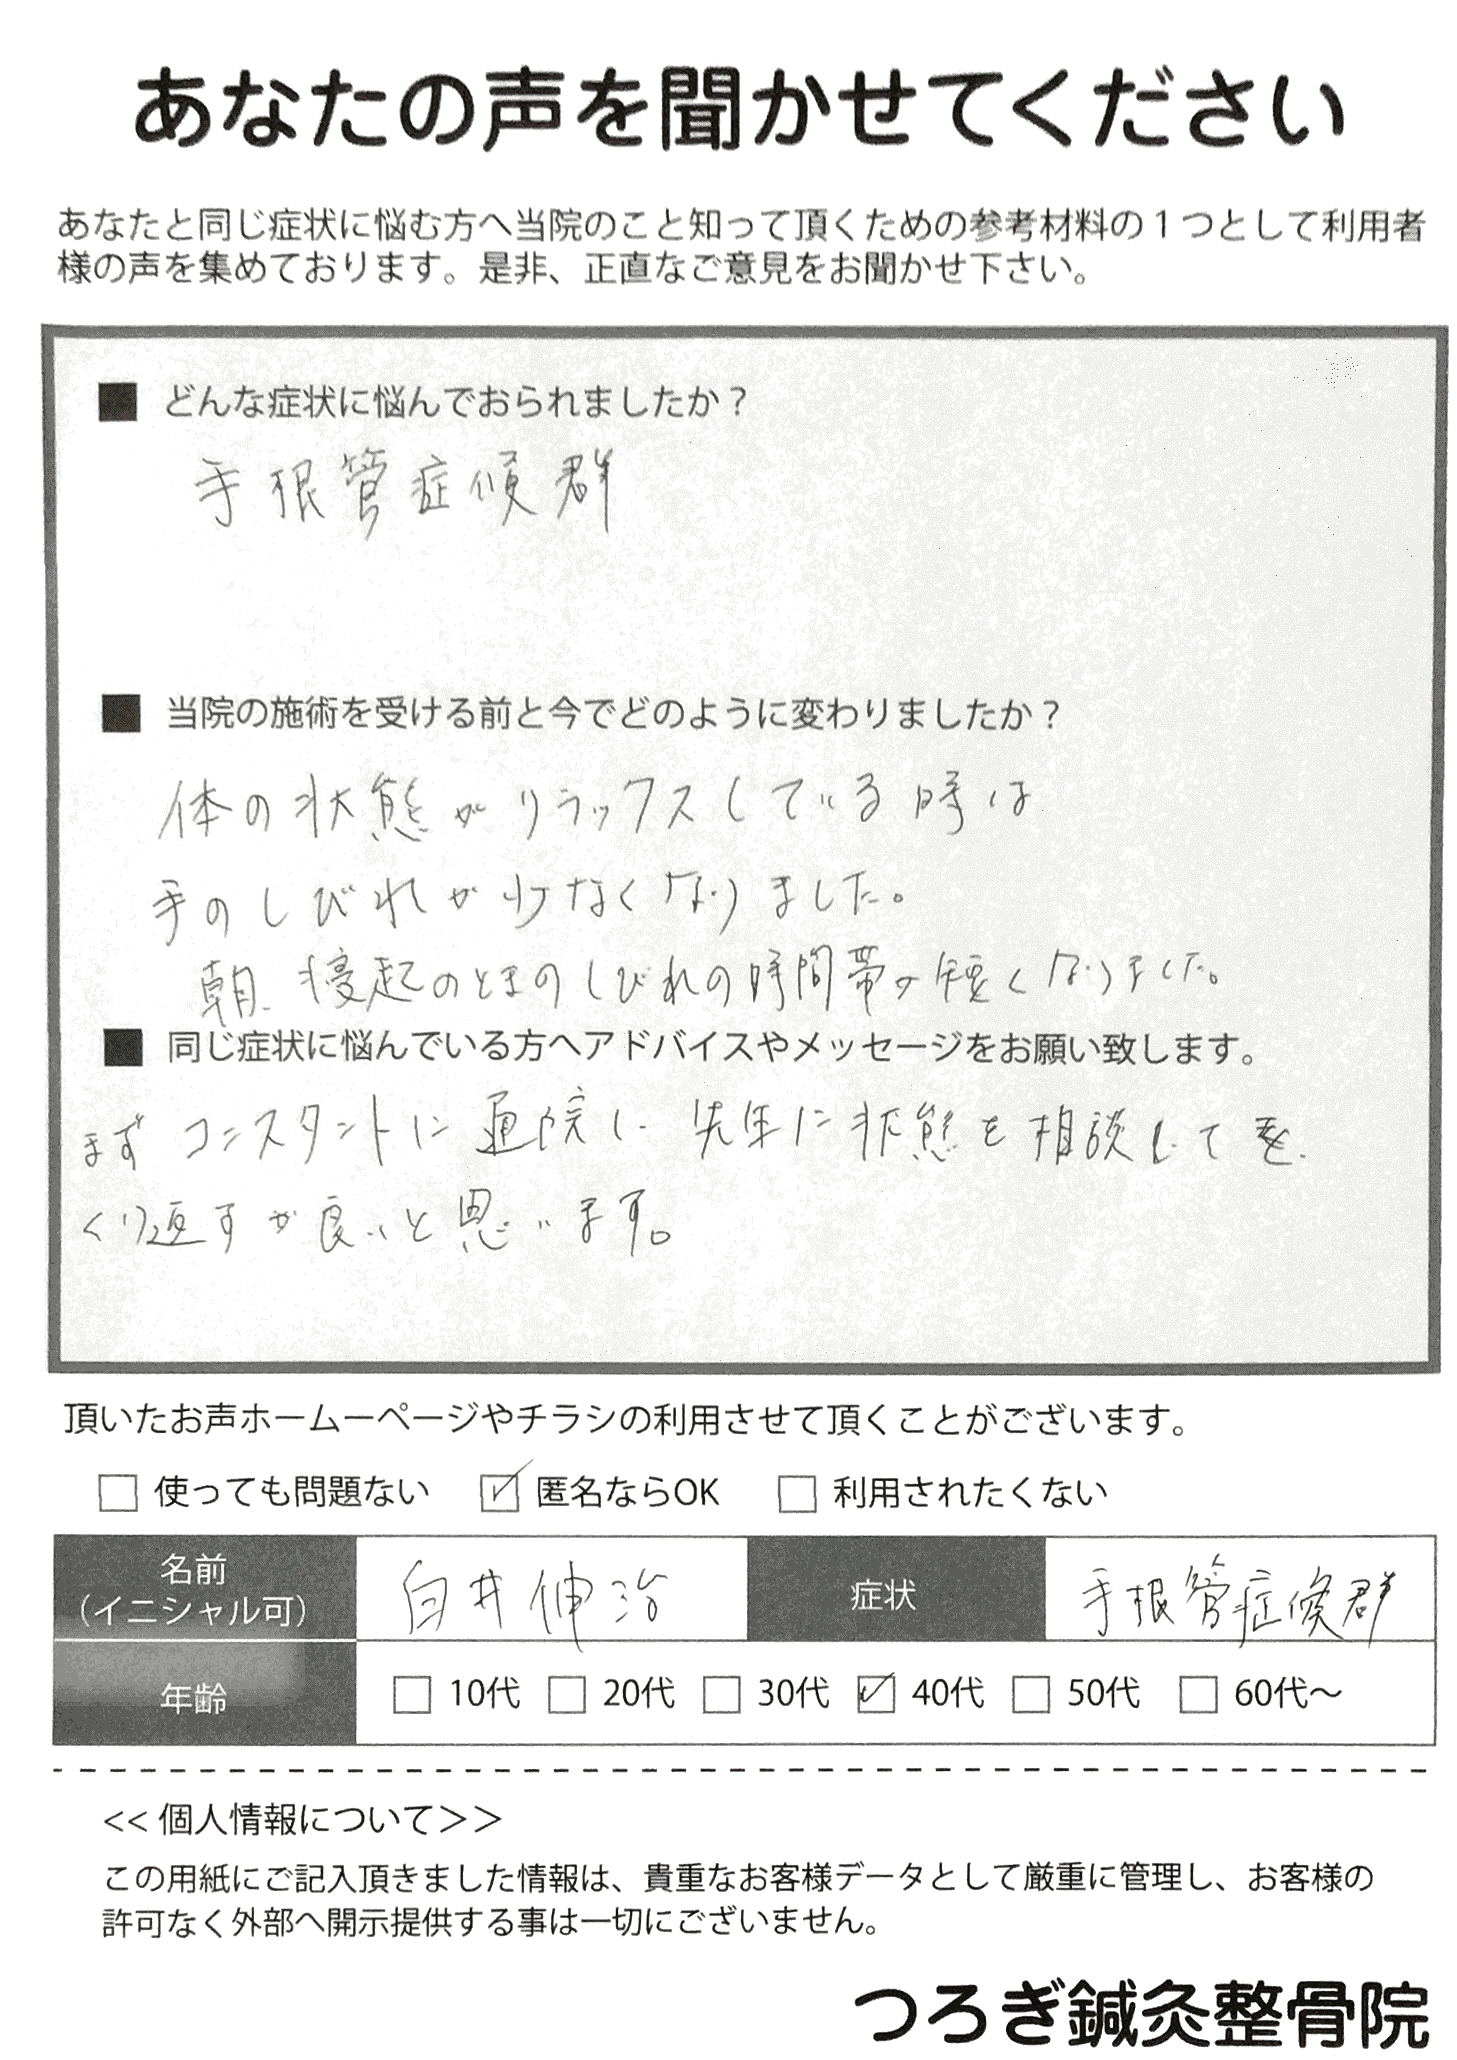 あなたの声を聞かせてください
あなたと同じ症状に悩む方へ当院のこと知って頂くための参考材料の１つとして利用者
様の声を集めております。是非、正直なご意見をお聞かせ下さい。
■ どんな症状に悩んでおられましたか？
手根管症候群
■ 当院の施術を受ける前と今でどのように変わりましたか？
体の状態がリラックスしている時は
手のしびれが少なくなりました。
朝、寝起のときのしびれの時間帯が短くなりました。
■ 同じ症状に悩んでいる方へアドバイスやメッセージをお願い致します。
まずコンスタントに通院し、先生に状態を相談してを
くり返すが良いと思います。
頂いたお声ホームーページやチラシの利用させて頂くことがございます。
□ 使っても問題ない ☑ 匿名ならOK □ 利用されたくない
名前
（イニシャル可） 白井伸治 症状 手根管症候群
年齢 □ 10代 □ 20代 □ 30代 ☑ 40代 □ 50代 □ 60代〜
<< 個人情報について＞＞
この用紙にご記入頂きました情報は、貴重なお客様データとして厳重に管理し、お客様の
許可なく外部へ開示提供する事は一切にございません。
つろぎ鍼灸整骨院